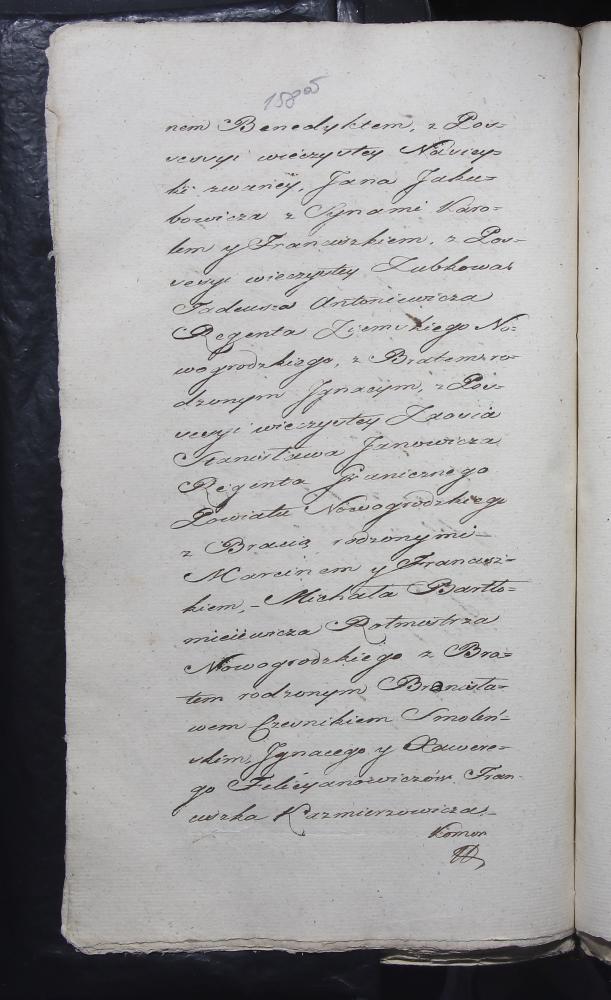 158
nem Benedyktem, z Pos-
sessyi wieczystey Nawicy-
ki zwaney, Jana Jaku-
bowicza z Synami Karo-
lem y Franciszkiem, z Pos-
sesyi wieczystey Lubkowas
Tadeusza Antoniewicza
Regenta Ziemskiego No-
wogrodzkiego, z Bratem ro-
dzonym Jgnacym, z Pos-
sessyi wieczystey
Stanisława Janowicza
Regenta Granicznego
Powiatu Nowogrodzkiego
z Bracią rodzonymi
Marcinem y Francisz-
kiem, - Michała Bartło-
mieiewicza Rotmistrza
Nowogrodzkiego z Bra-
tem rodzonym Bronisła-
wem Czesnikiem Smoleń-
skim, Jgnacego y Xawere-
go Felicyanowiczów. Fran-
ciszka Kazmierzowicza,-
Komor